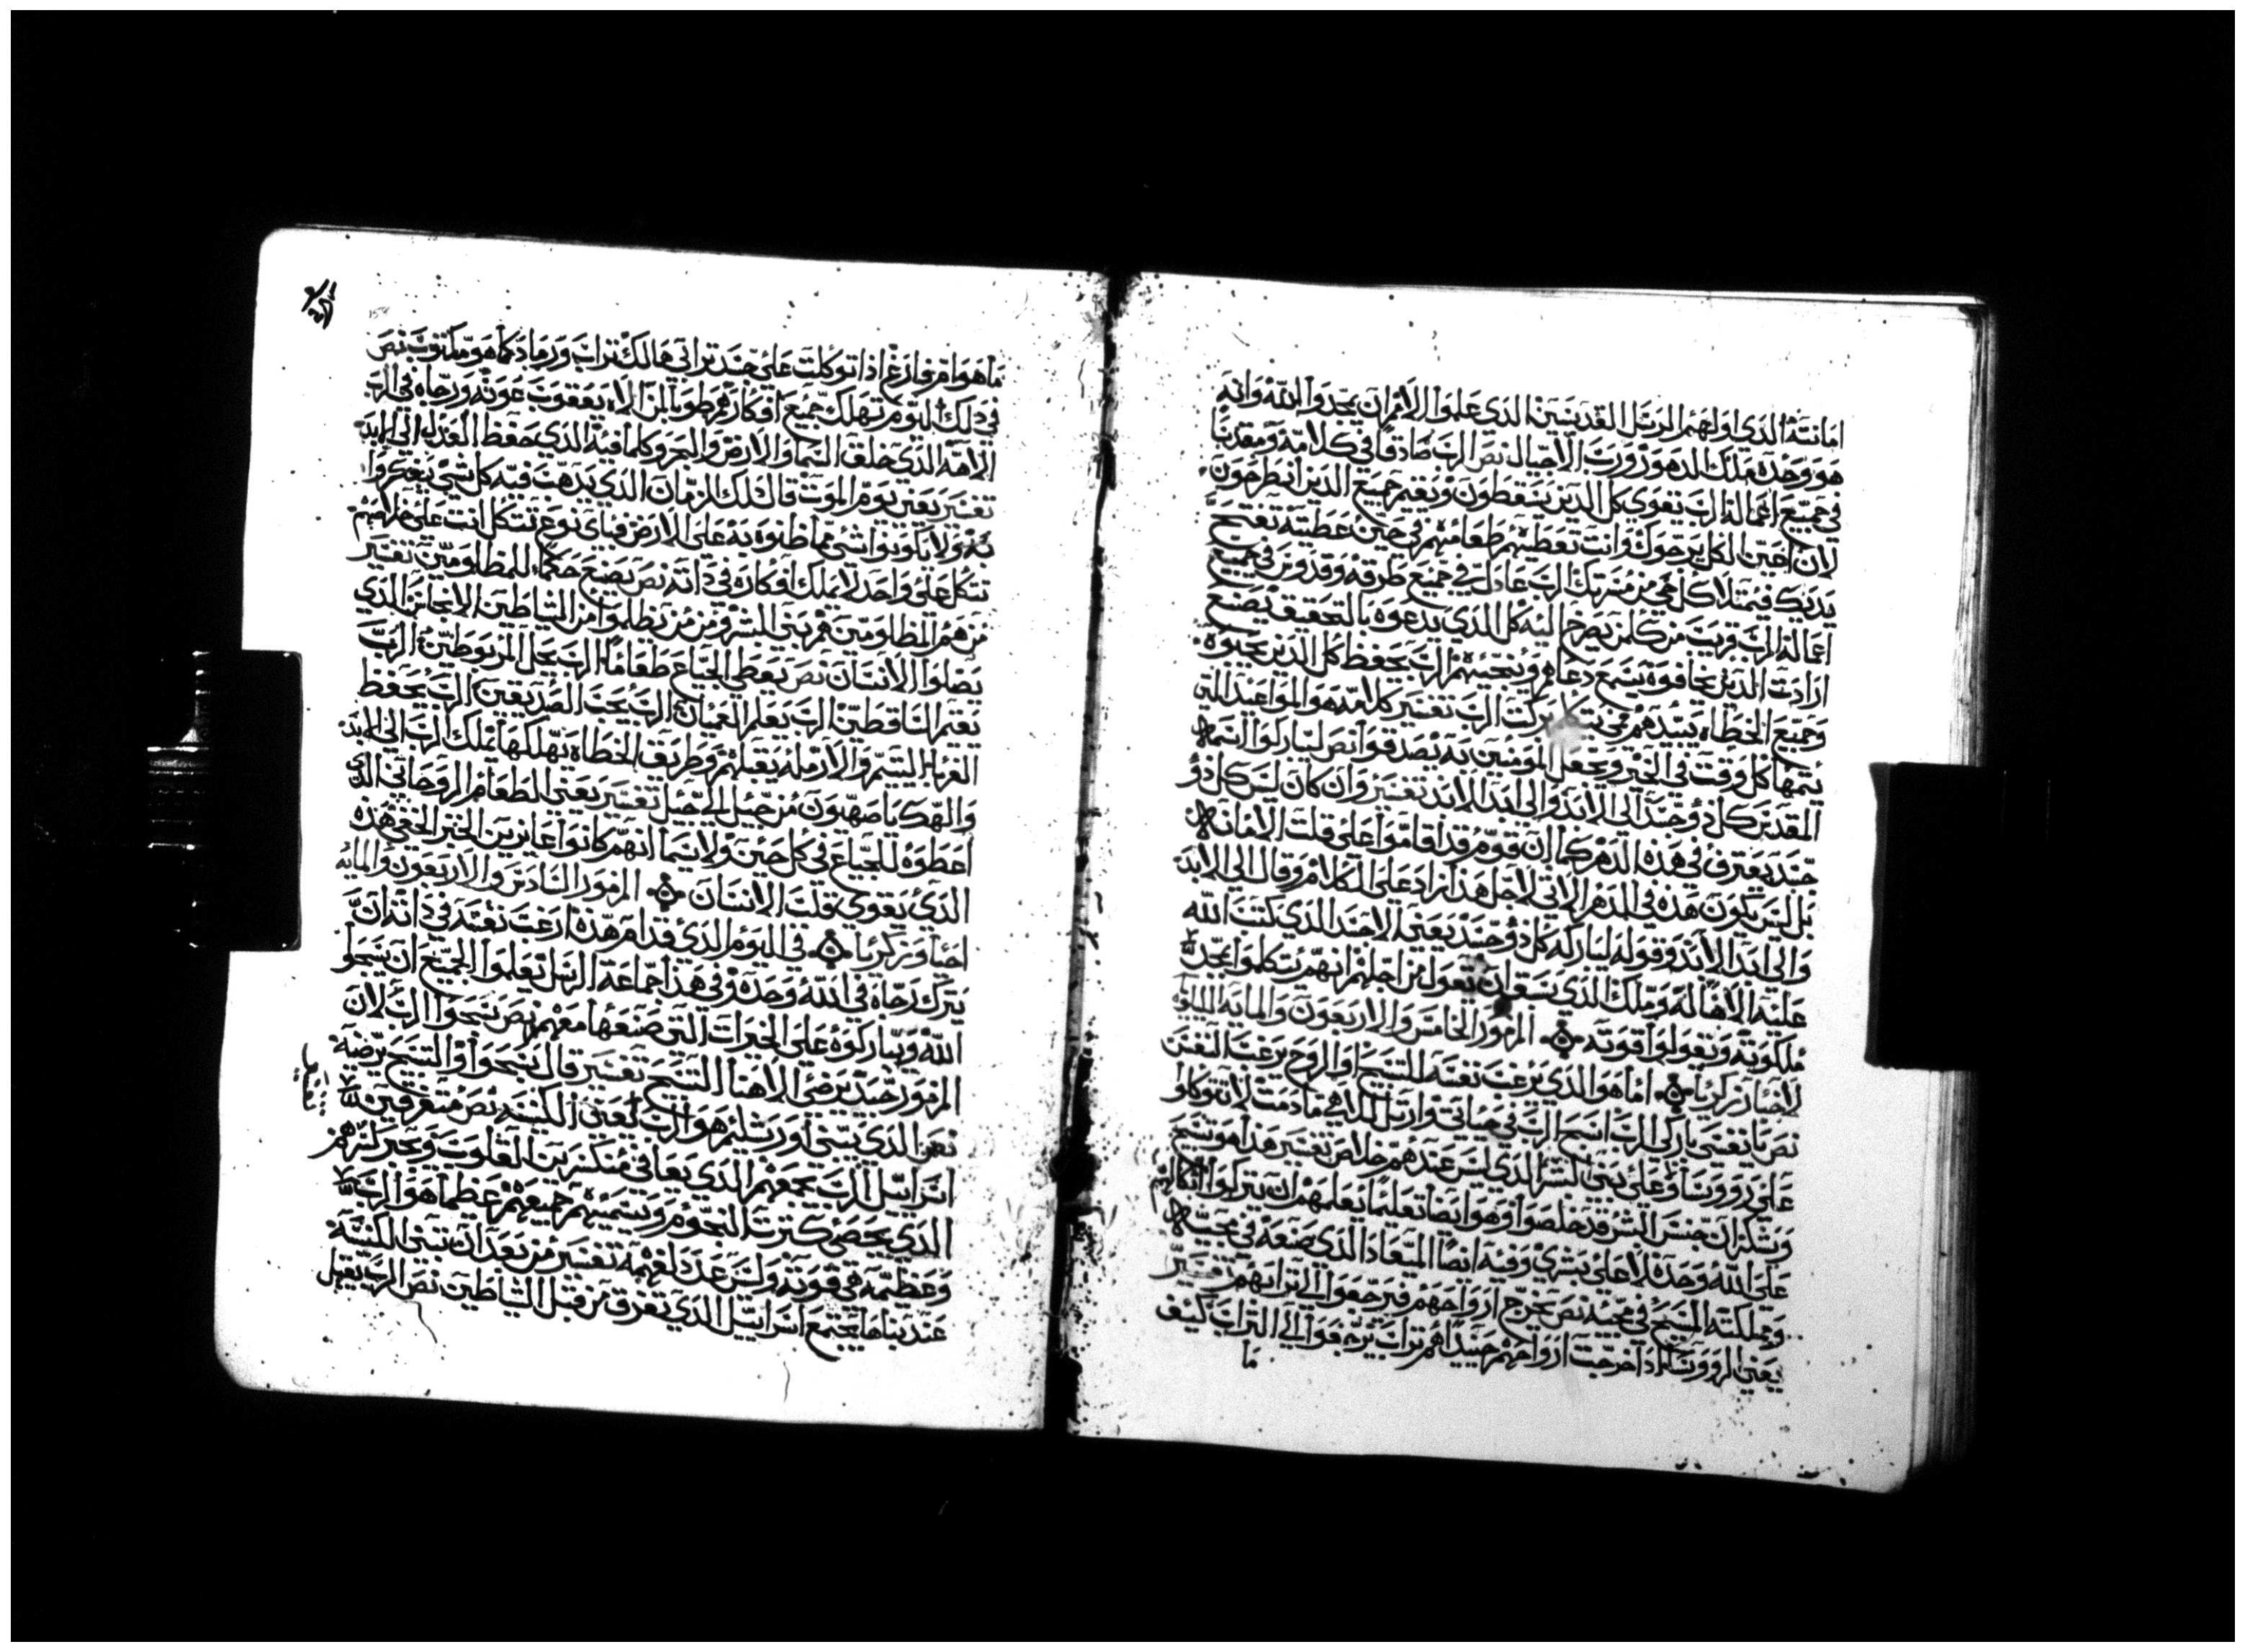 امانته الذي اولهم الرسل القديسين الذي علموا الامم ان يمجدوا الله وانه
هو وحده ملك الدهور ورب الاجيال نص الرب صادقا في كلامه ومقدسا
في جميع اعماله الرب يقوي كل الذين يسقطون ويقيم جميع الذين انطرحون
لان اعين الكل يرجوك وانت تعطيهم طعامهم في حين عطيته تفتح
يديك فيمتلا كل حي من مسرتك الرب عادل في جميع طرقه وقدوس في جميع
اعماله الرب قريب من كلمن يصرخ اليه كل الذي يدعوه بالتحقيق يصنع
ارادت الذين يخافوه يسمع دعاهم وينجيهم الرب يحفظ كل الذين يحبوه
وجميع الخطاه يبيدهم بركت الرب تفسير كلامه هو المواعيد التي
يتمها كل وقت في الخير ويجعل المومنين به يصدقوا نص ليباركوا اسمه
القدس كل ذو جسد الي الابد والي ابد الابد تفسير وان كان ليس كل ذو
جسد يعترف في هذه الدهر كما ان قوم قد اقاموا علي قلت الامانه
بل ليس يكون هذه في الدهر الاتي لاجل هذا زاد علي الكلام وقال الي الابد
والي ابد الابد وقوله ليباركه كل ذو جسد يعني الاجسد الذي كتب الله
عليه الاهاله وملك الذي نسع ان نقول من اجلهم انهم يتكلموا بمجد
ملكوته ويقولوا قوته المزمور الخامس والاربعون والمايه الليلويا
لاجيا وزكريا اما هو الذي يرغب نفسه التسيح او الروح يرغب النفس
نص يا نفسي باركي الرب اسبح الرب في حياتي وارتل لالاهي مادمت لا تتوكلوا
علي روسا ولا علي بني البشر الذي ليس عندهم خلاص تفسير هذا هو تسبيح
وبشكر ان جنس البشر قد خلصوا وهو ايضا تعليما يعلمهم ان يتركوا اتكالهم
علي الله وحده لا علي بشري وفيه ايضا الميعاد الذي صنعه في محبته
ومملكته المسيح في محبيه نص يخرج ارواحهم فيرجعوا الي ترابهم تفسير
يعني الروسا اذا خرجت ارواحهم حينيذا هم تراب يرجعوا الي التراب كيف
ما
ما هو امر فارغ اذا توكلت علي جسد ترابي هالك تراب ورماد كما هو مكتوب نص
في ذلك اليوم تهلك جميع افكارهم طوبا لمن الاه يعقوب عونه ورجاه في الرب
الاهه الذي خلق السما والارض والبحر وكلما فيه الذي حفظ العدل الي الابد
تفسير يعني يوم الموت قال تلك الزمان الذي يدهت فيه كل شي يفكروا
به ولا يكونوا شي مما ظنوه به علي الارض فباي نوع تتكل انت علي خلاصهم
تتكل علي واحد لا يملك افكاره في ذاته نص يصنع حكما للمظلومين تفسير
من هم المظلومين هم بني البشر ومن من يظلموا من الشياطين الانجاس الذي
يضلوا الانسان نص يعطي الجياع طعاما الرب يحل المربوطين الرب
يقيم الساقطين الرب يعلم العميان الرب يحب الصديقين الرب يحفظ
الغربا اليتيم والارمله يقبلهم وطريق الخطاه يهلكها يملك الرب الي الابد
والهك يا صهيون من جيل الي جيل تفسير يعني الطعام الروحاني الذي
اعطوه للجياع في كل حين ولا سيما انهم كانوا عايزين الخبز الحقي هذه
الذي يقوي قلب الانسان المزمور السادس والاربعون والمايه
اجيا وزكريا في اليوم الذي قد امر هذه ارغب نفسه في ذاته ان
يترك رجاه في الله وحده وفي هذا جماعة الرسل تعلموا الجميع ان يسبحوا
الله ويباركوه علي الخيرات التي صنعها معهم نص سبحوا الرب لان
المزمور جيد يرضي الاهنا التسيح تفسير قال سبحوا والتسبيح يرضيه
نص الذي يبني اورشليم هو الرب يعني الكنيسه نص متفرقين
اسراييل الرب يجمعهم الذي يعافي منكسرين القلوب ويجبر كسرهم
الذي يحصي كثرت النجوم ويسميهم جميعهم عظيما هو الرب
وعظيمه هي قوته وليس عدد لفهمه تفسير من بعد ان تبني الكنيسه
عند بناها يجتمع اسراييل الذي تفرق من قبل الشياطين نص الرب يقبل